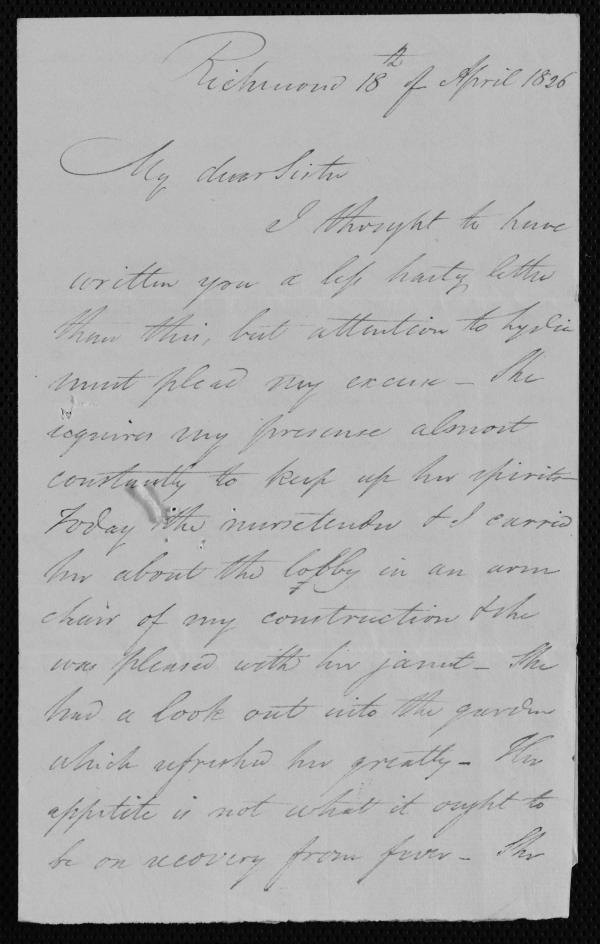 Richmond 18th of April 1826
My dear Sister
I thought to have
written you a less hasty letter
than this, but attention to Lydia
must plead my excuse - She
requires my presence almost
constantly to keep up her spirits -
Today the nursetender & I carried
her about the lobby in an arm
chair of my construction & she
was pleased with her jaunt - She
had a look out into the garden
which refreshed her greatly - Her
appetite is not what it ought to
be on recovery from fever - She